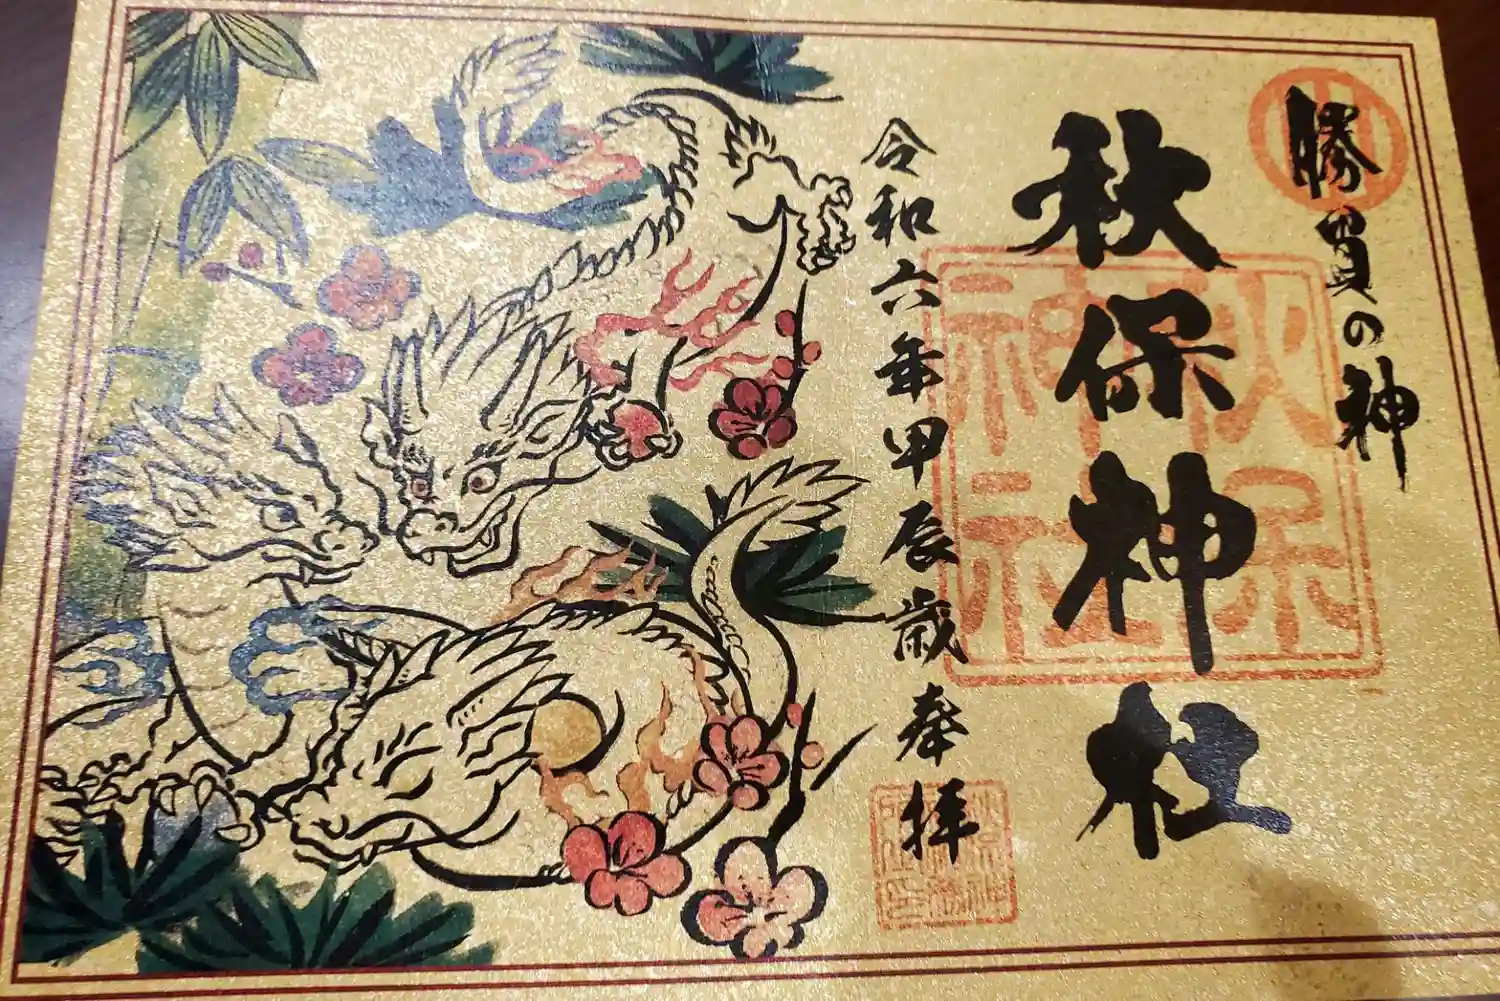 勝負の神
秋保神社
秋保神社
令和六年甲辰歳奉拝